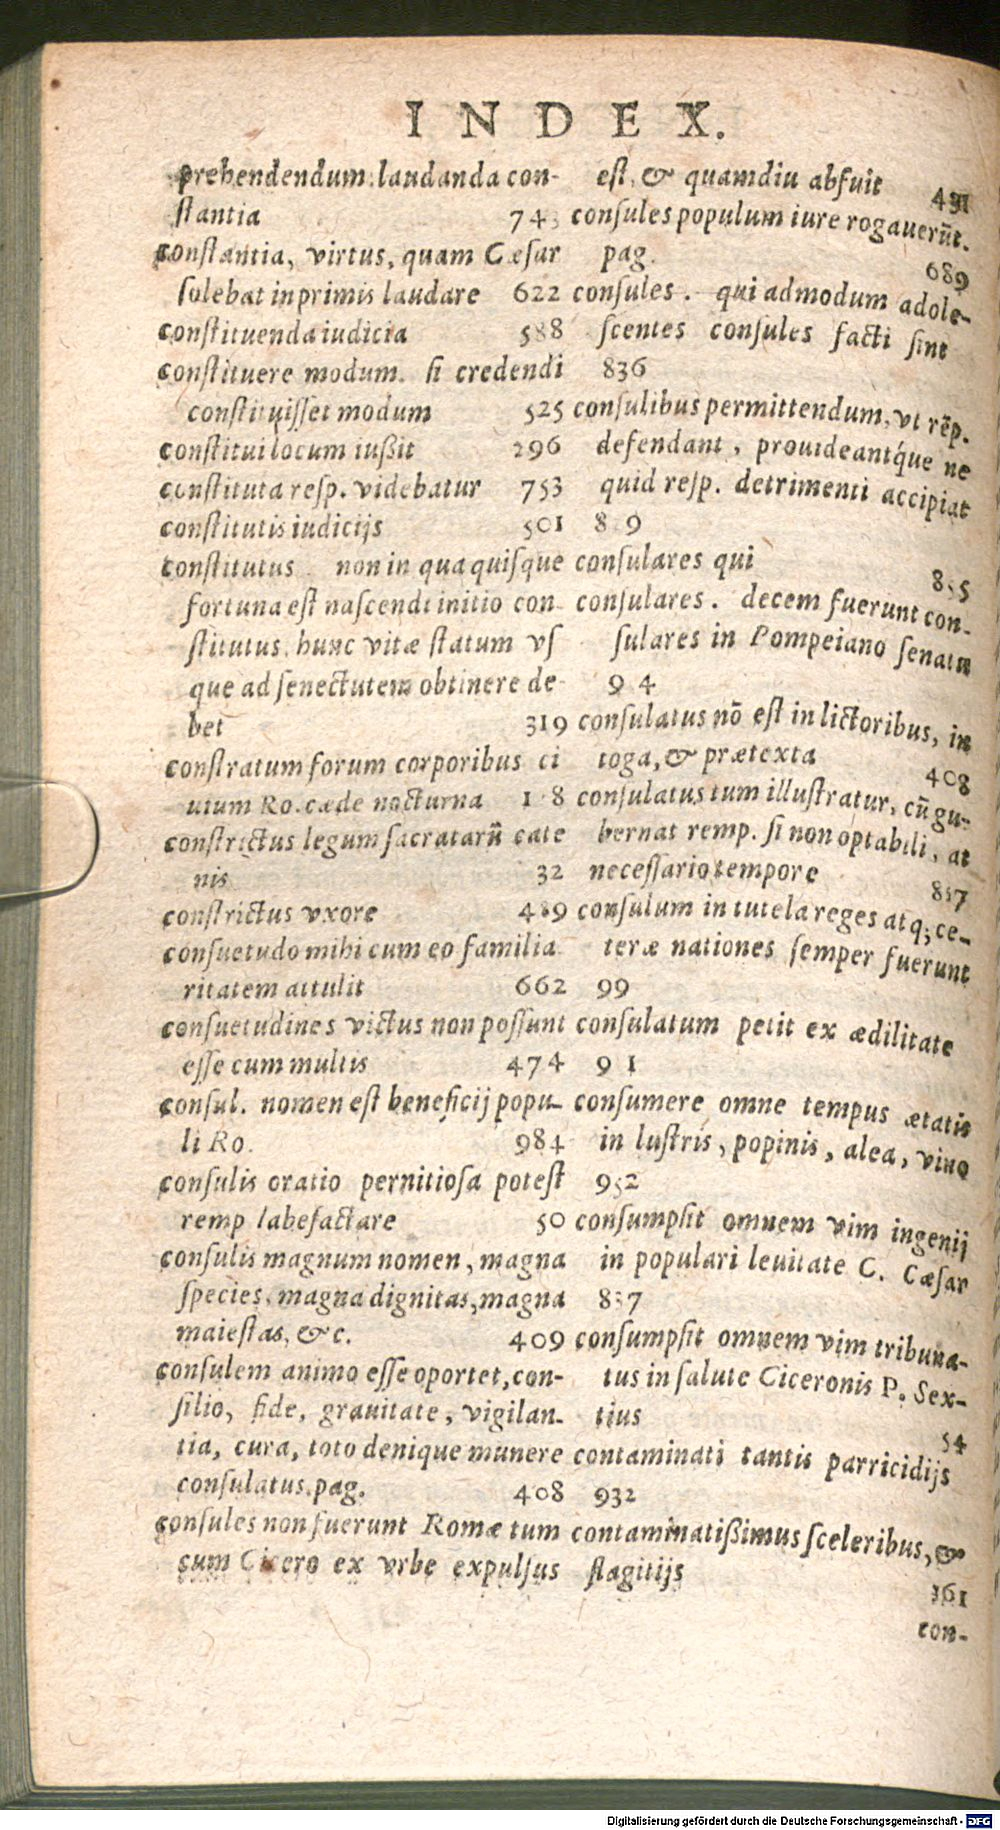 INDEX.
prehendendum. laudanda con-
stantia
constantia, virtus, quam Cæsar
solebat inprimis laudare 622
constituenda iudicia 588
constituere modum. si credendi
constituisset modum 525
constitui locum iußit 296
constituta resp. videbatur 753
constitutis iudicijs 501
constitutus non in qua quisque
fortuna est nascendi initio con-
stitutus, hunc vitæ statum vs
que ad senectutem obtinere de-
bet 319
constratum forum corporibus ci
uium Ro. cæde nocturna
constrictus legum sacratarũ cate
nis 32
constrictus vxore 489
consuetudo mihi cum eo familia
ritatem attulit 662
consuetudines victus non possunt
esse cum multis 474
consul. nomen est beneficij popu-
li Ro. 984
consulis oratio pernitiosa potest
remp labefactare 50
consulis magnum nomen, magna
species, magna dignitas, magna
maiestas, &c. 409
consulem animo esse oportet, con-
silio, fide, grauitate, vigilan-
tia, cura, toto denique munere
consulatus. pag. 408
consules non fuerunt Romæ tum
cum Cicero ex vrbe expulsus
est, & quamdiu abfuit 491
consules populum iure rogauerũt.
pag. 689
consules. qui admodum adole-
scentes consules facti sint
836
consulibus permittendum, vt rẽp.
defendant, prouideantq́ue ne
quid resp. detrimenti accipiat
consulares qui
consulares. decem fuerunt con-
sulares in Pompeiano senatu
94
consulatus nõ est in lictoribus, in
toga, & prætexta 408
consulatus tum illustratur, cũ gu-
bernat remp. si non optabili, at
necessario tempore
consulum in tutela reges atq; ce-
teræ nationes semper fuerunt
99
consulatum petit ex ædilitate
91
consumere omne tempus ætatis
in lustris, popinis, alea, vino
952
consumpsit omnem vim ingenij
in populari leuitate C. Cæsar
consumpsit omnem vim tribuna-
tus in salute Ciceronis P. Sex-
tius 54
contaminati tantis parricidijs
932
contaminatißimus sceleribus, &
flagitijs 161
con-
Digitalisierung gefördert durch die Deutsche Forschungsgemeinschaft - DFG